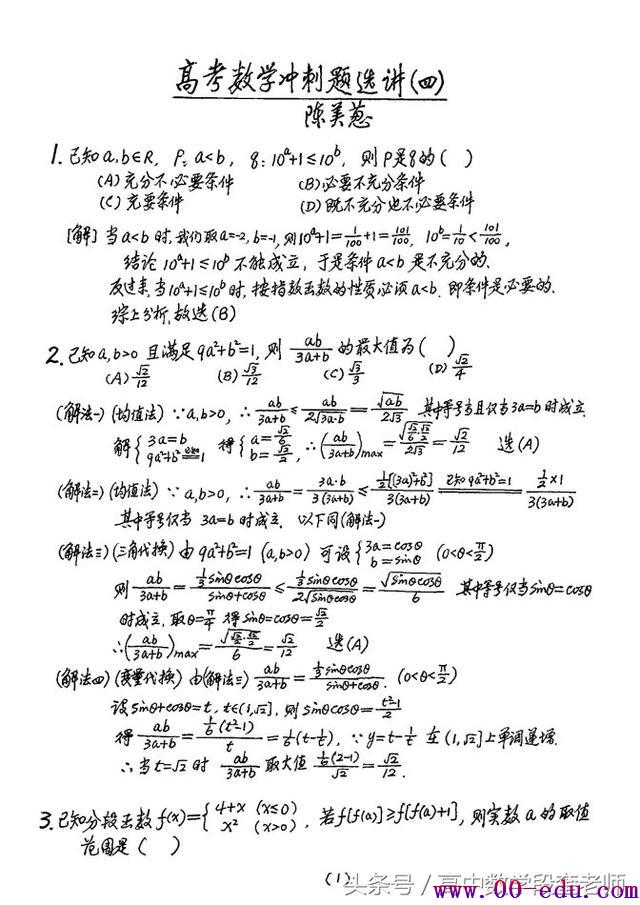 高考数学冲刺题选讲(四)
陈美蒽
1. 已知a,b∈R, P: a<b, q: 10^a+1≤10^b, 则P是q的( )
(A)充分不必要条件 (B)必要不充分条件
(C)充要条件 (D)既不充分也不必要条件
[解] 当a<b时,我们取a=-2,b=-1,则10^a+1=1/100+1=101/100, 10^b=1/10<101/100,
结论10^a+1≤10^b不能成立,于是条件a<b是不充分的.
反过来,当10^a+1≤10^b时,按指数函数的性质必须a<b.即条件是必要的.
综上分析,故选(B)
2. 已知a,b>0且满足9a²+b²=1,则 ab/(3a+b) 的最大值为( )
(A)√2/12 (B)√3/12 (C)√3/3 (D)√2/4
(解法一)(均值法) ∵a,b>0, ∴ab/(3a+b)≤ab/(2√(3a·b))=√(ab)/(2√3) 其中等号当且仅当3a=b时成立.
解{3a=b 9a²+b²=1 得{a=√2/6 b=√2/2, ∴(ab/(3a+b))max=√(√2/6·√2/2)/(2√3)=√2/12 选(A)
(解法二)(均值法) ∵a,b>0, ∴ab/(3a+b)=3a·b/(3(3a+b))≤½[(3a)²+b²]/(3(3a+b)) 已知9a²+b²=1 = ½×1/(3(3a+b))
其中等号仅当3a=b时成立. 以下同(解法一)
(解法三)(三角代换) 由9a²+b²=1 (a,b>0) 可设{3a=cosθ b=sinθ (0<θ<π/2)
则 ab/(3a+b)=⅓sinθcosθ/(sinθ+cosθ)≤⅓sinθcosθ/(2√(sinθcosθ))=√(sinθcosθ)/6 其中等号仅当sinθ=cosθ
时成立,取θ=π/4 得sinθ=cosθ=√2/2
∴(ab/(3a+b))max=√(√2/2·√2/2)/6=√2/12 选(A)
(解法四)(变量代换) 由(解法三) ab/(3a+b)=⅓sinθcosθ/(sinθ+cosθ). (0<θ<π/2)
设sinθ+cosθ=t, t∈(1,√2], 则sinθcosθ=(t²-1)/2
得 ab/(3a+b)=⅙(t²-1)/t=⅙(t-1/t), ∵y=t-1/t 在(1,√2]上单调递增.
∴当t=√2时 ab/(3a+b) 取大值 ⅙(2-1)/√2=√2/12.
3. 已知分段函数f(x)={4+x (x≤0) x² (x>0), 若f[f(a)]≥f[f(a)+1],则实数a的取值
范围是( )
(1)
头条号/高中数学段李老师
www.00-edu.com